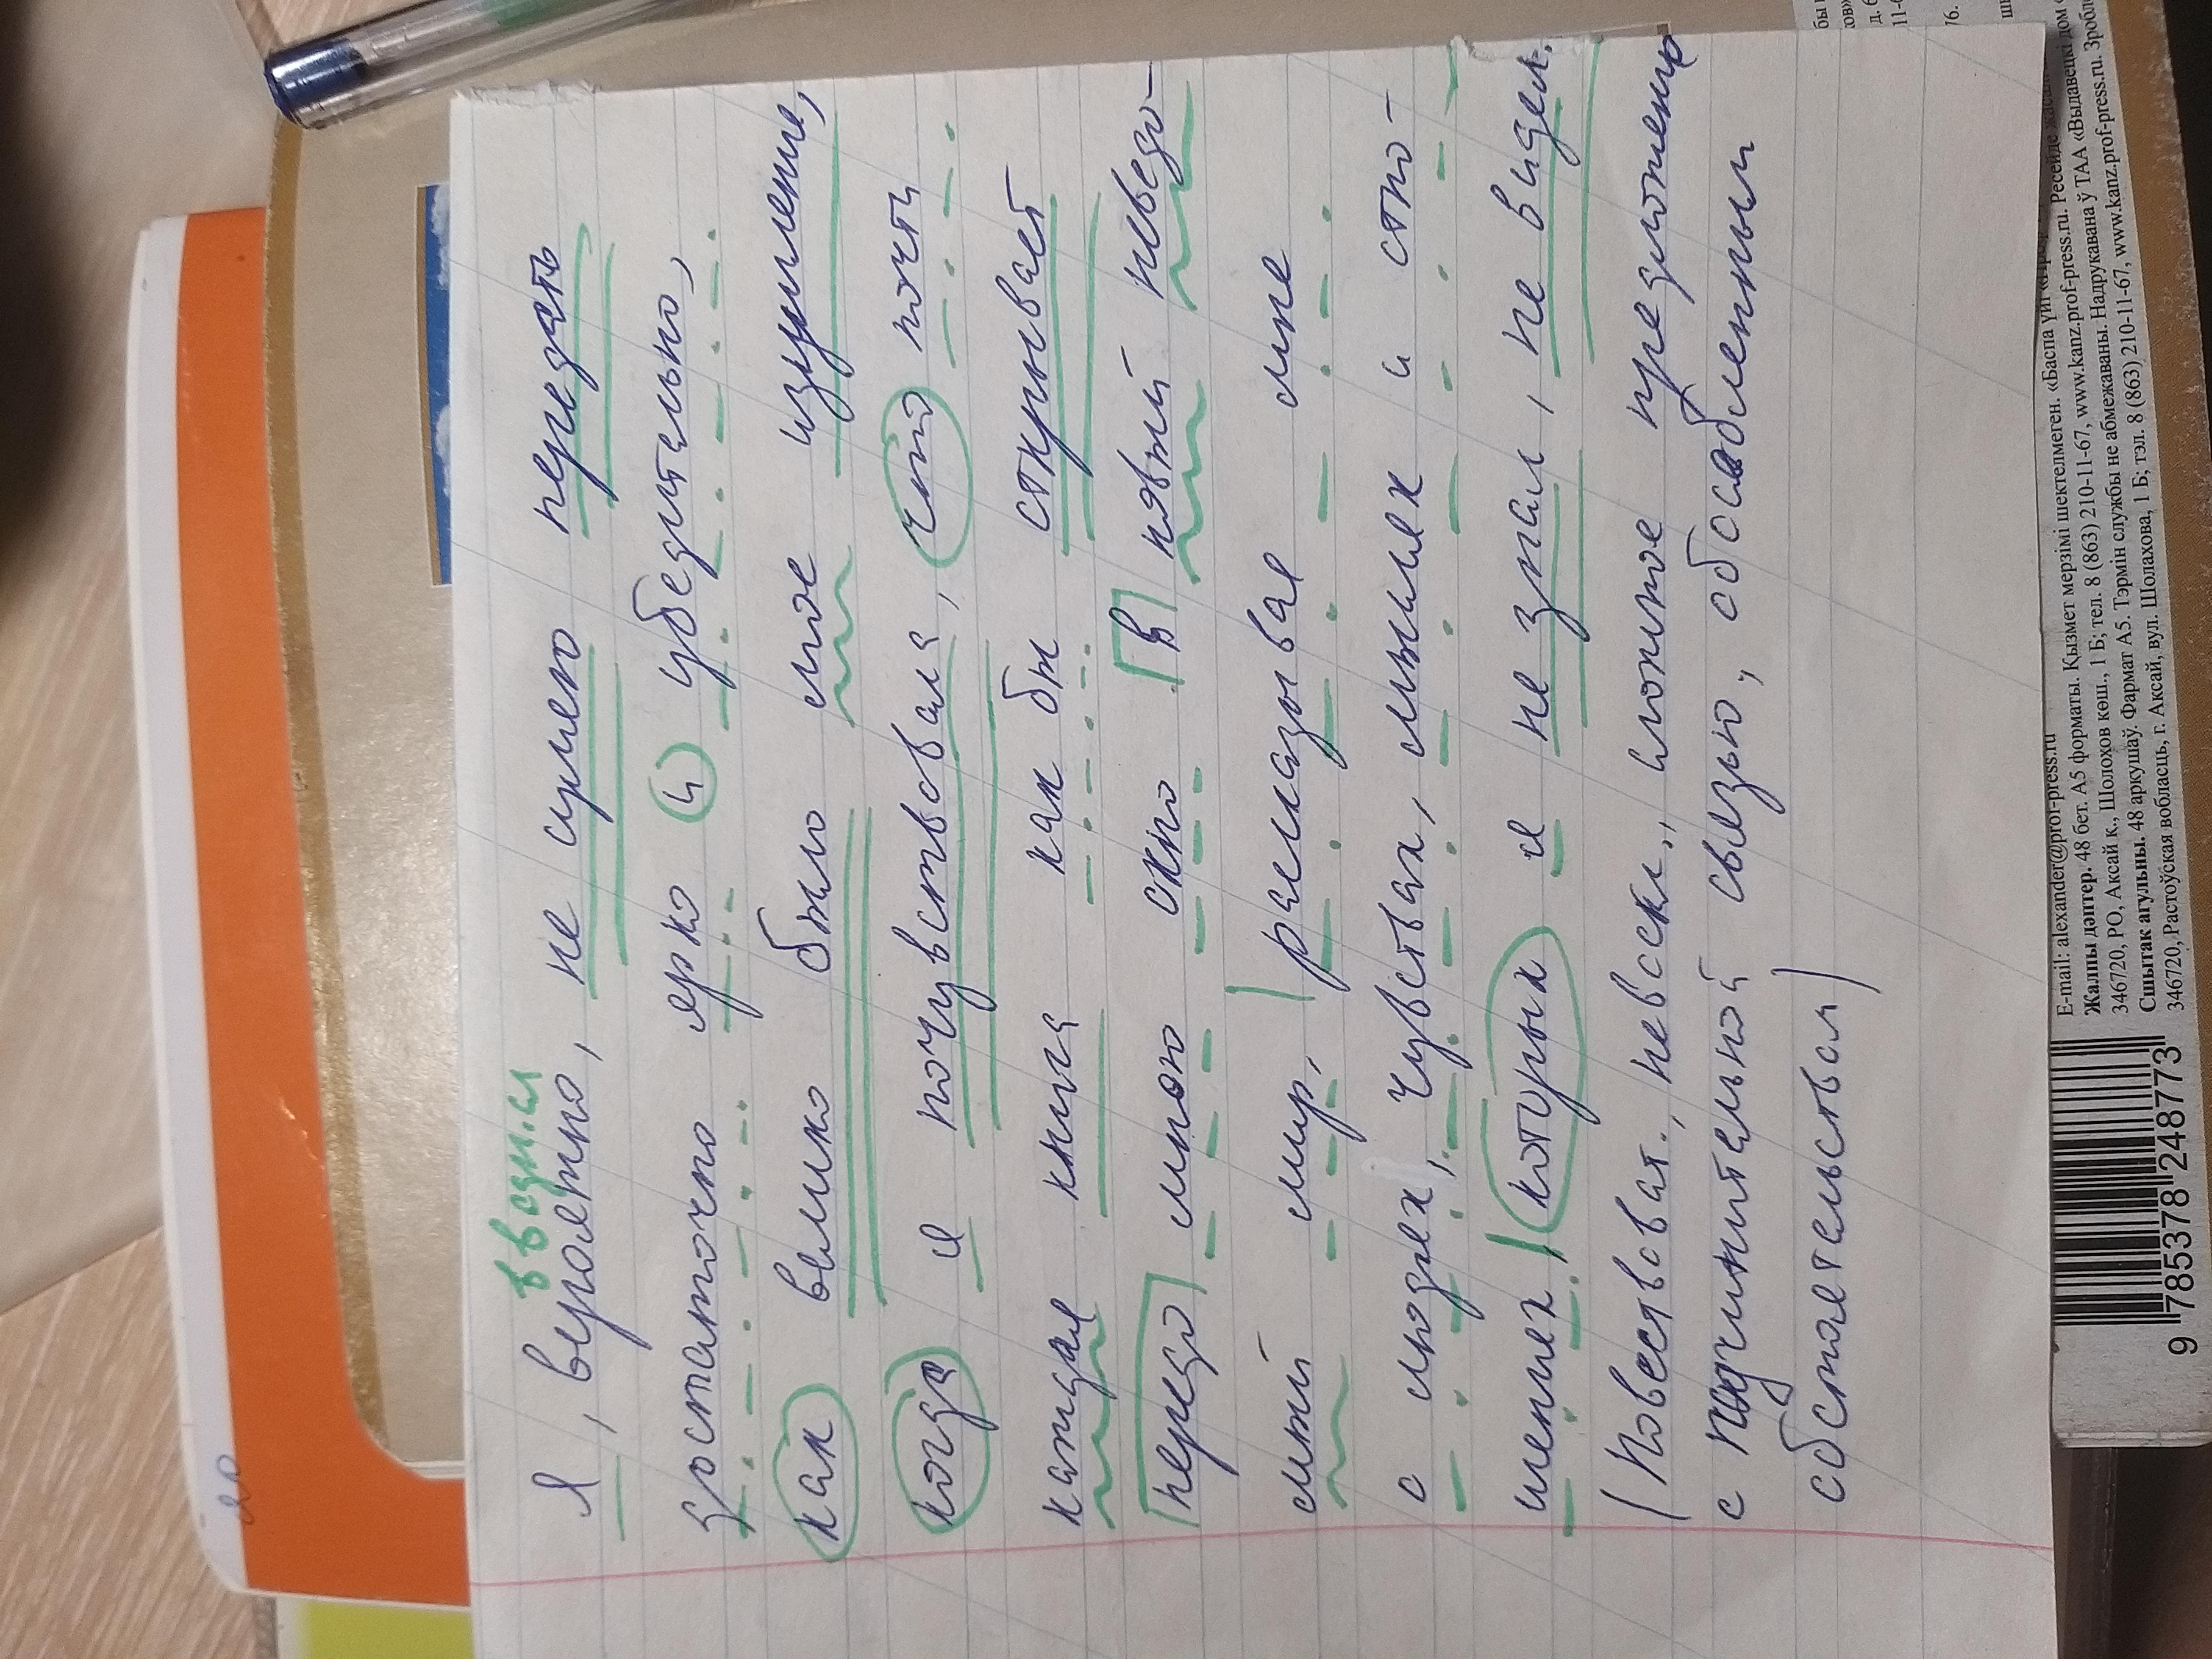 20
вводн.сл
Я, вероятно, не сумею передать
достаточно ярко и убедительно,
как велико было мое изумление,
когда я почувствовал, что почти
каждая книга как бы открывает
передо мною окно в новый неведо-
мый мир, рассказывая мне
о людях, чувствах, мыслях и отно-
шениях, которых я не знал, не видел.
(Повествоват., невоскл., сложное предложение
с подчинительной связью, обособленным
обстоятельством)
E-mail: alexander@prof-press.ru
Жалпы дәптер. 48 бет. А5 форматы. Қызмет мерзімі шектелмеген. «Баспа үйі
346720, РО, Аксай к., Шолохов көш., 1 Б; тел. 8 (863) 210-11-67, www.kanz.prof-press.ru. Ресейде
Сшытак агульны. 48 аркушаў. Фармат А5. Тэрмін службы не абмежаваны. Надрукавана ў ТАА «Выдавецкі дом
346720, Растоўская вобласць, г. Аксай, вул. Шолахова, 1 Б; тэл. 8 (863) 210-11-67, www.kanz.prof-press.ru.
9 785378 248773